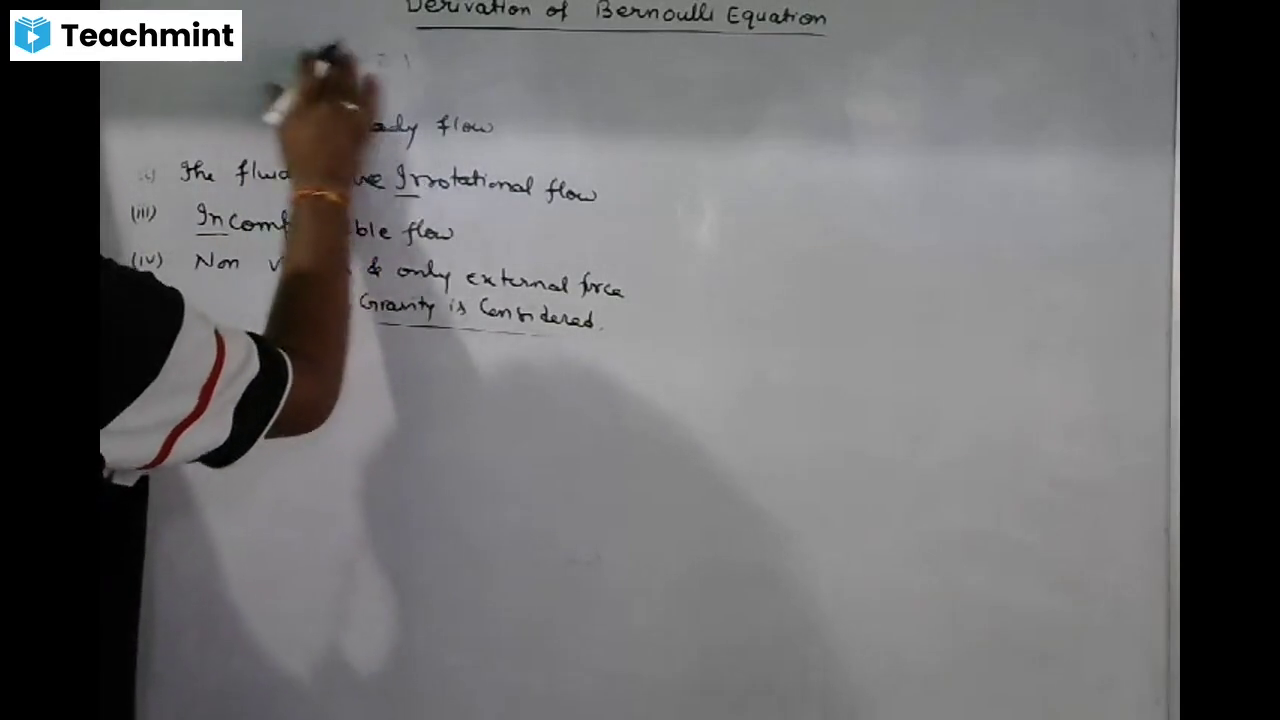 Teachmint
Derivation of Bernoulli Equation
flow
The Irrotational flow
(iii) flow
(iv) Non & only external force
Gravity is Considered.